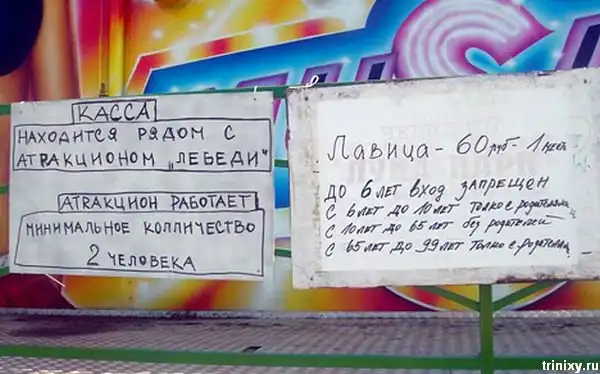 КАССА
НАХОДИТСЯ РЯДОМ С
АТRАКЦИОНОМ „ЛЕБЕДИ"
АТRАКЦИОН РАБОТАЕТ
МИНИМАЛЬНОЕ КОЛЛИЧЕСТВО
2 ЧЕЛОВЕКА
Лавица - 60 руб - 1
ДО 6 ЛЕТ ВХОД ЗАПРЕЩЕН
С 6 ЛЕТ ДО 10 ЛЕТ ТОЛКО С РОДИТЕЛЯМИ
С 10 ЛЕТ ДО 65 ЛЕТ БЕЗ РОДИТЕЛЕЙ
С 65 ЛЕТ ДО 99 ЛЕТ ТОЛКО С РОДИТЕЛЯМИ
trinixy.ru